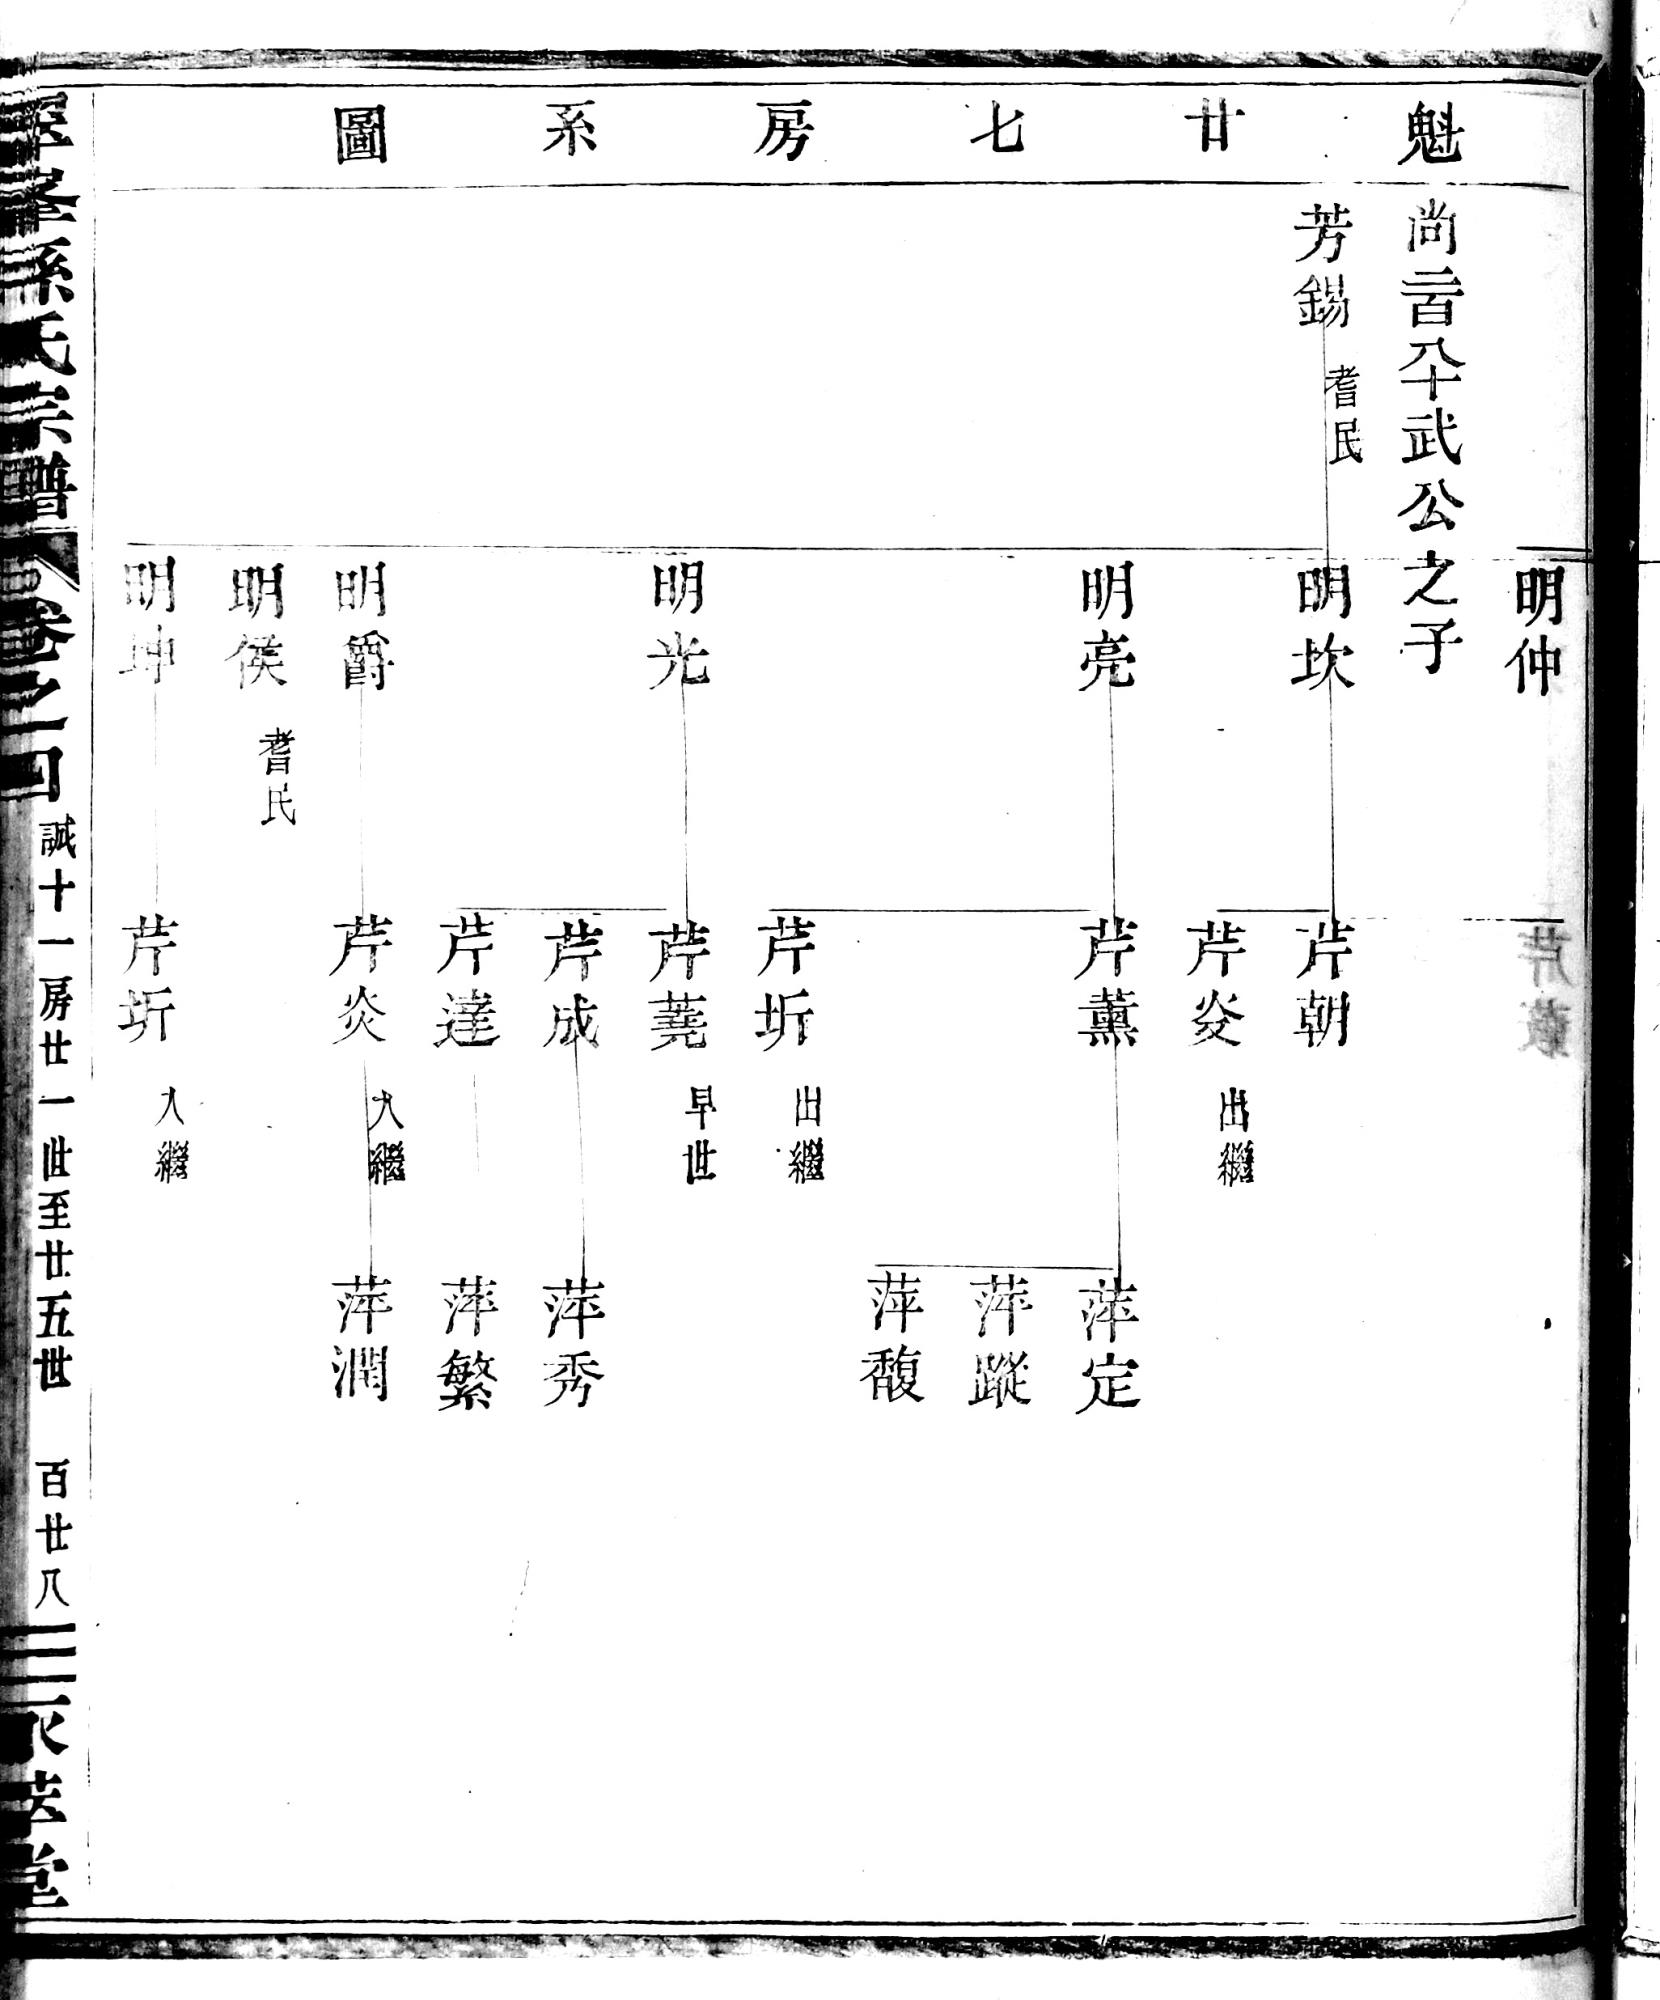 魁廿七房系圖
明仲
尚二百八十武公之子
芳錫 耆民
明坎
芹朝
芹炎 出繼
明亮
芹薰
萍定
萍蹤
萍馥
芹圻 出繼
明光
芹蕘 早世
芹成
萍秀
芹達
萍繁
明爵
芹炎 入繼
萍潤
明侯 耆民
明坤
芹圻 入繼
孫氏宗譜 卷之四 誠十一房廿一世至廿五世 百廿八 堂